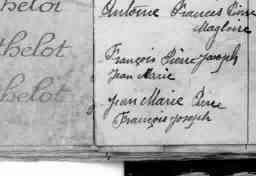 helot
Antoine Francois Pierre
Magloire
thelot
François Pierre Joseph
Jean Marie
helot
Jean Marie Pierre
François Joseph